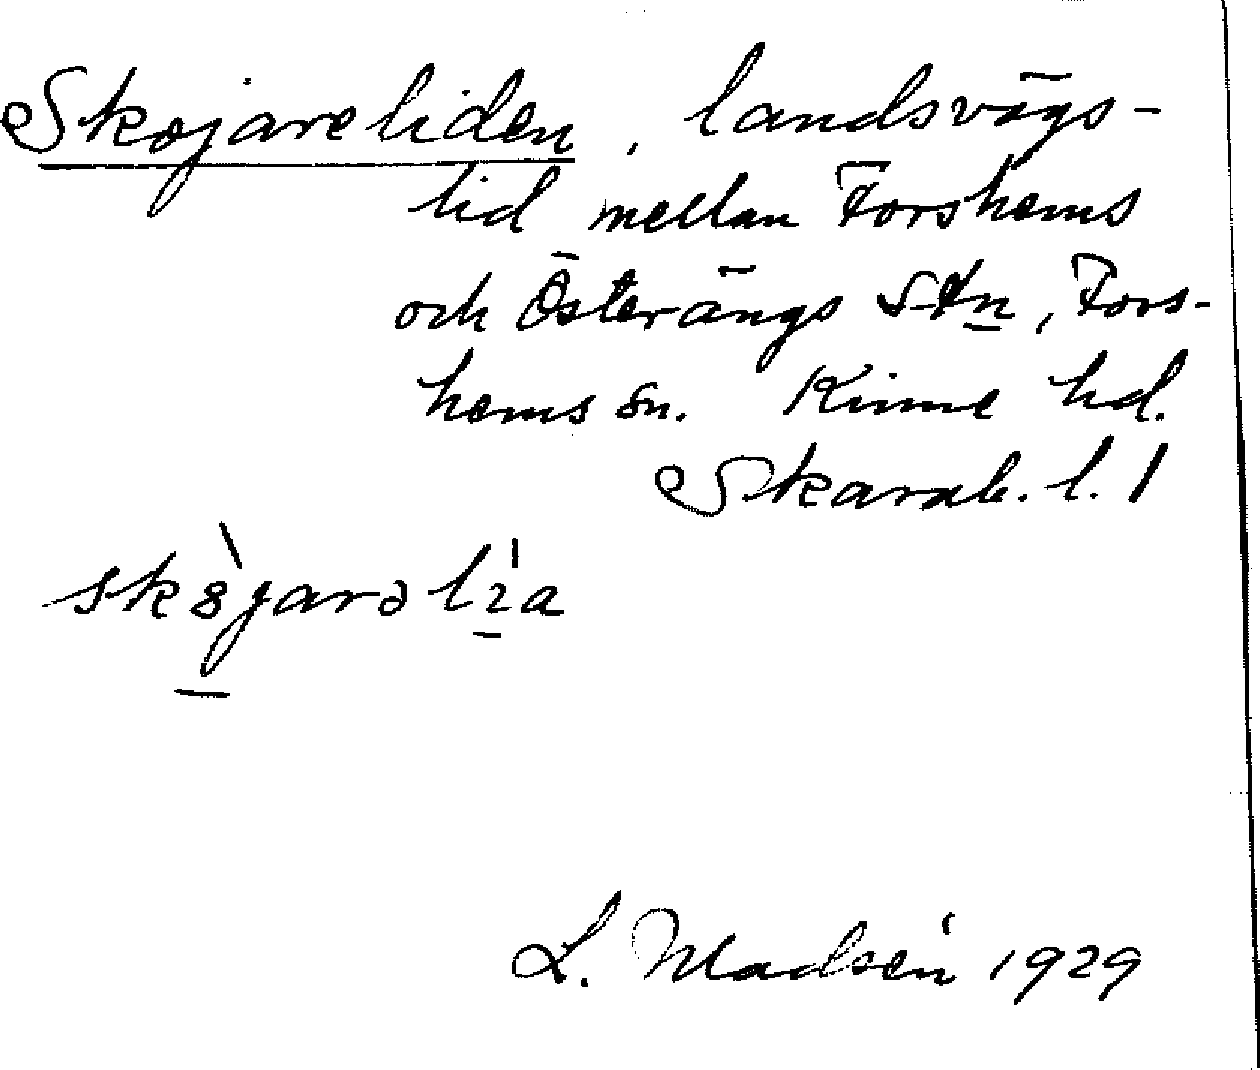 Skojareliden, landsvägs-
lid mellan Forshems
och Österängs stn, Fors-
hems sn. Kinne hd.
Skarab. l. 1
L. Madsén 1929